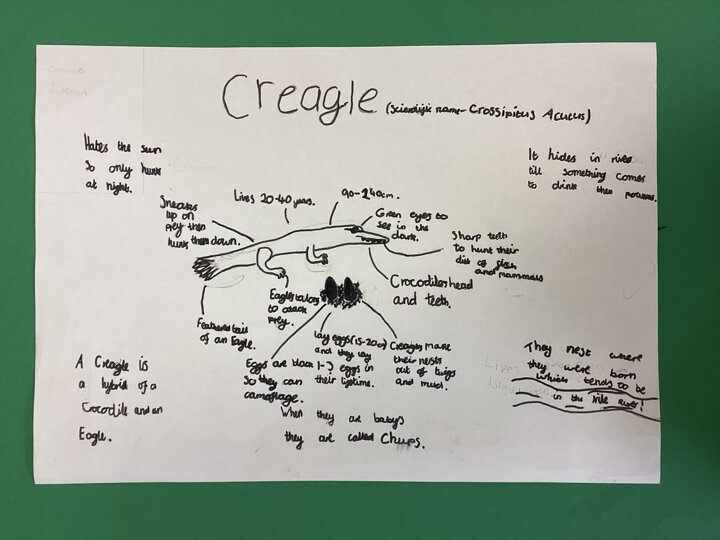 Creagle (Scientific name- Crossipitus Acutus)
Hates the sun
So only hunts
at night.
It hides in river
till something comes
to drink then pounces.
Lives 20-40 years.
90-240cm.
Green eyes to
see in the
dark.
Sneaks
up on
prey then
hunts them down.
Sharp teeth
to hunt their
diet of fish
and mammals
Crocodiles head
and teeth.
Eagles talons
to attack
prey.
Feathered tail
of an Eagle.
Eggs are black
So they can
camoflage.
lay eggs (15-20cm)
and they lay
1-3 eggs in
their lifetime.
Creagles make
their nests
out of twigs
and mud.
They nest where
they were born
which tends to be
in the Nile River!
A Creagle is
a hybrid of a
Crocodile and an
Eagle.
When they are babys
they are called Chups.